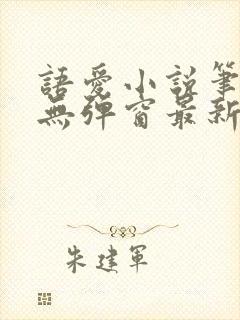 語愛小說筆
無彈窗最新
朱建軍